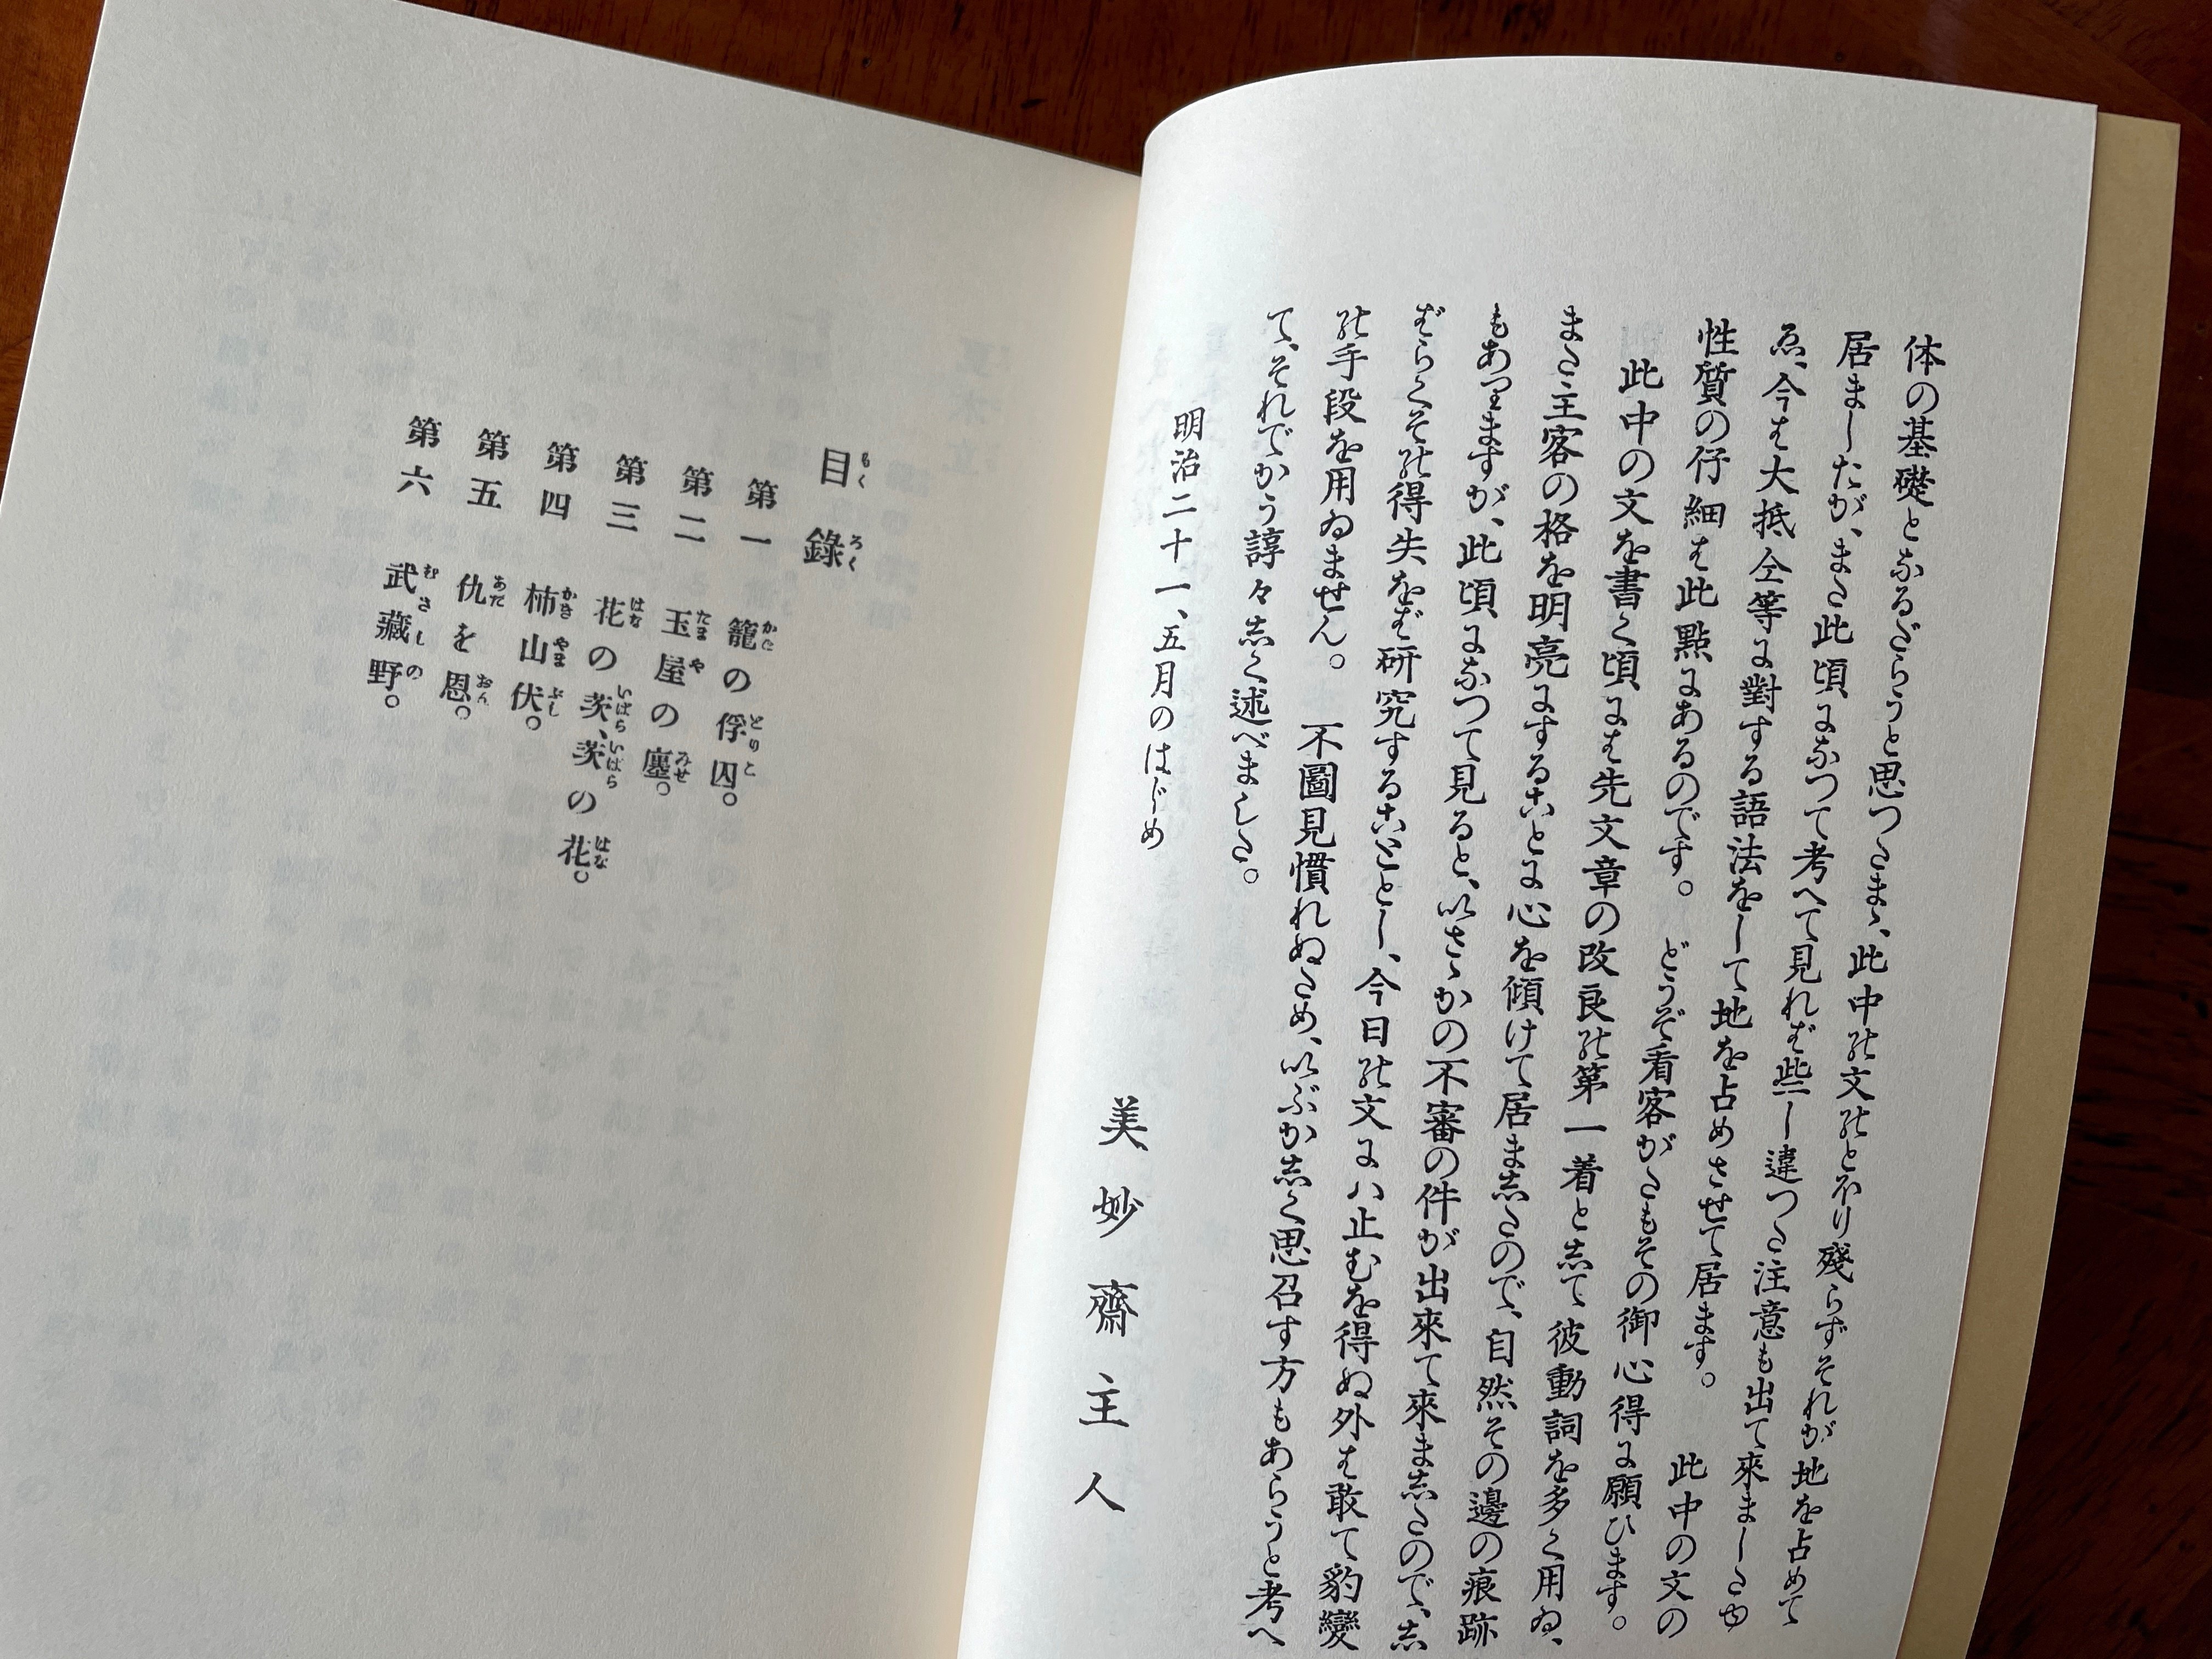 体の基礎となるだらうと思つたまゝ、此中の文のとほり殘らずそれが地を占めて
居ましたが、また此頃になつて考へて見れば些し違つた注意も出て來ましたゆ
ゑ、今は大抵仝等に對する語法をして地を占めさせて居ます。　此中の文の
性質の仔細は此點にあるのです。　どうぞ看客がたもその御心得に願ひます。
此中の文を書く頃には先文章の改良の第一着として彼動詞を多く用ゐ、
また主客の格を明亮にすることに心を傾けて居ましたので、自然その邊の痕跡
もありますが、此頃になつて見ると、いさゝかの不審の件が出來て來ましたので、し
ばらくその得失をば研究することとし、今日の文にハ止むを得ぬ外は敢て豹變
の手段を用ゐません。　不圖見慣れぬため、いぶかしく思召す方もあらうと考へ
て、それでかう諄々しく述べました。
明治二十一、五月のはじめ
美妙齋主人
目錄
もくろく
第一　籠の俘囚。
かごとりこ
第二　玉屋の廛。
たまやみせ
第三　花の茨、茨の花。
はないばらいばらはな
第四　柿山伏。
かきやまぶし
第五　仇を恩。
あだおん
第六　武藏野。
むさしの